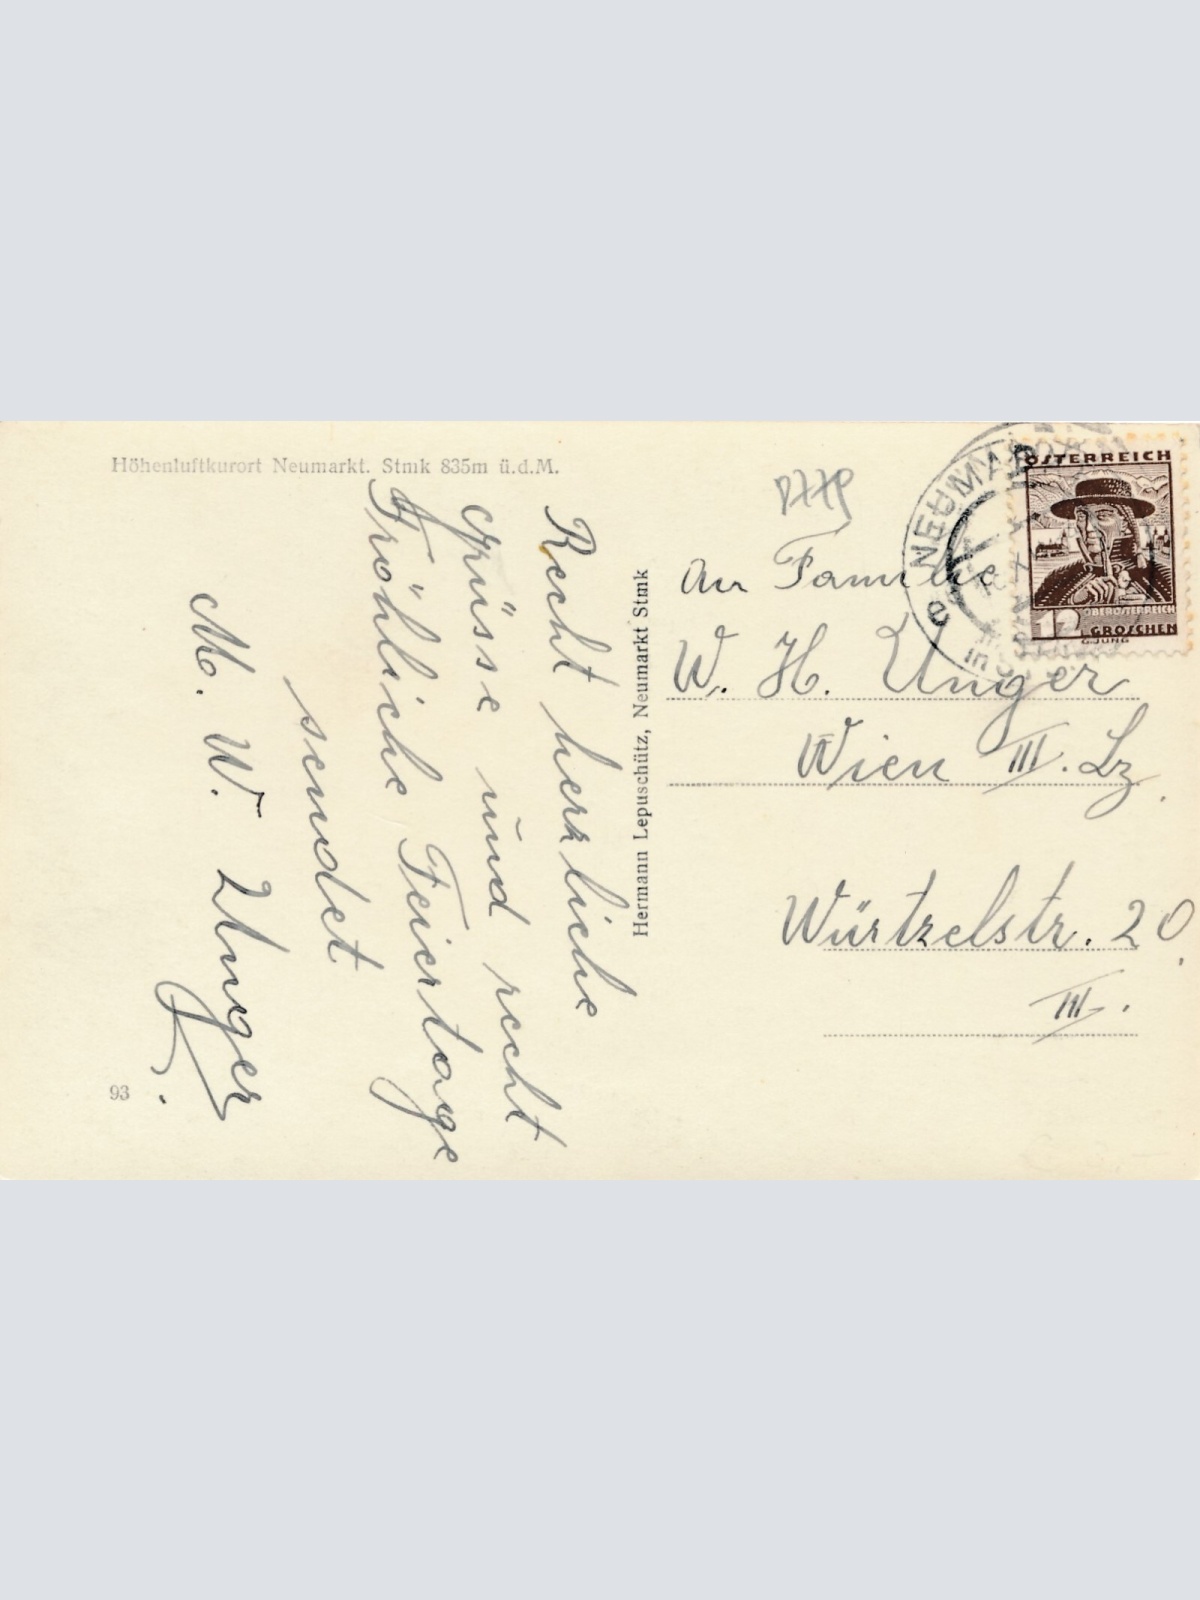 Höhenluftkurort Neumarkt. Stmk 835m ü.d.M.
Recht herzliche
Grüsse und recht
Fröhliche Feiertage
sendet
M. W. Unger
93
Hermann Lepuschütz, Neumarkt Stmk
An Familie
W. H. Unger
Wien III. Lz.
Würtzelstr. 20.
III.
NEUMARKT
in
ÖSTERREICH
OBERÖSTERREICH
12 GROSCHEN
G.JUNG